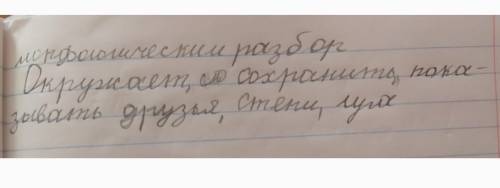 морфологический разбор
Окружает, сохранить, пока-
зывать друзья, степи, луга